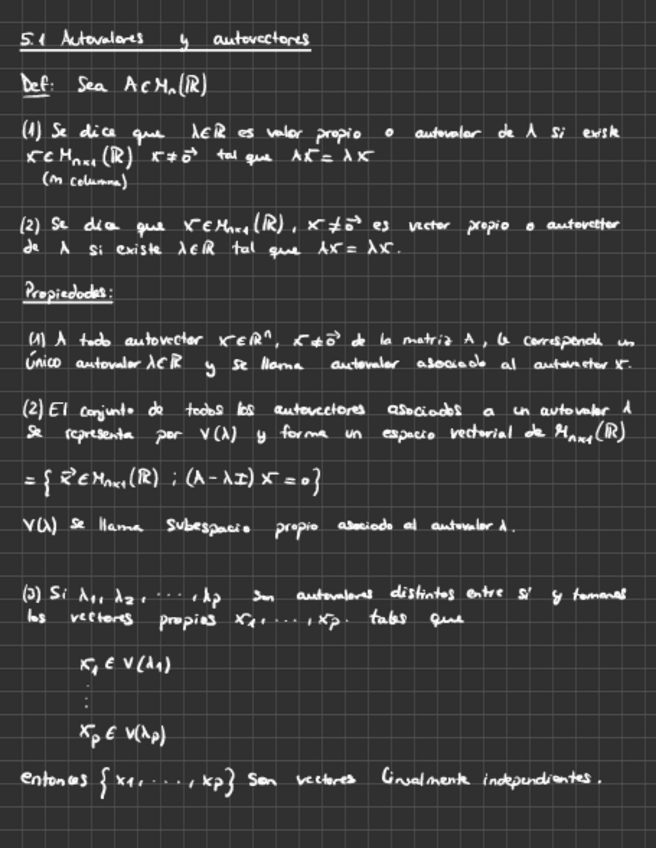 5.1 Autovalores y autovectores
Def: Sea A ∈ Mn(ℝ)
(1) Se dice que λ∈ℝ es valor propio o autovalor de A si existe
x ∈ Mn×1(ℝ) x≠0⃗ tal que Ax = λx
(m columna)
(2) Se dice que x∈Mn×1(ℝ), x≠0⃗ es vector propio o autovector
de A si existe λ∈ℝ tal que Ax = λx.
Propiedades:
(1) A todo autovector x∈ℝⁿ, x≠0⃗ de la matriz A, le corresponde un
único autovalor λ∈ℝ y se llama autovalor asociado al autovector x.
(2) El conjunto de todos los autovectores asociados a un autovalor λ
se representa por V(λ) y forma un espacio vectorial de Mn×1(ℝ)
= { x⃗ ∈ Mn×1(ℝ) ; (A - λI) x = 0}
V(λ) se llama subespacio propio asociado al autovalor λ.
(3) Si λ1, λ2, ..., λp son autovalores distintos entre sí y tomamos
los vectores propios x1, ..., xp. tales que
x1 ∈ V(λ1)
⋮
xp ∈ V(λp)
entonces {x1, ..., xp} son vectores linealmente independientes.